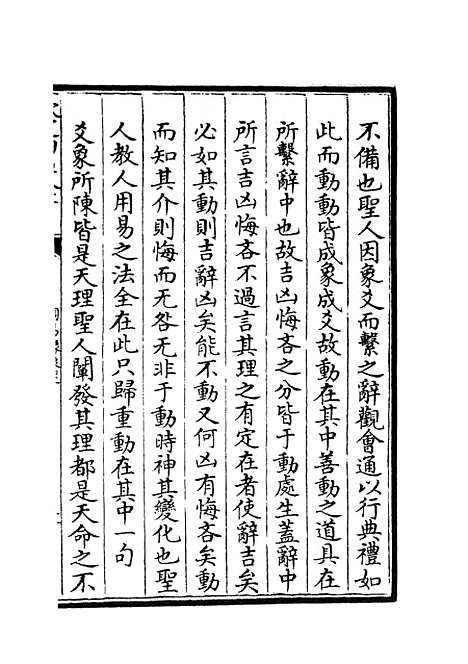 不備也聖人因象爻而繫之辭觀會通以行典禮如
此而動動皆成象成爻故動在其中善動之道具在
所繫辭中也故吉凶悔吝之分皆于動處生蓋辭中
所言吉凶悔吝不過言其理之有定在者使辭吉矣
必如其動則吉辭凶矣能不動又何凶有悔吝矣動
而知其介則悔而无咎无非于動時神其變化也聖
人教人用易之法全在此只歸重動在其中一句
爻象所陳皆是天理聖人闡發其理都是天命之不